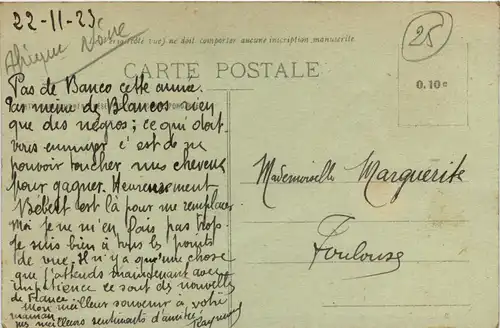 22-11-23
Afrique Noire
propriété vue) ne doit comporter aucune inscription manuscrite
25
CARTE POSTALE
0.10c
Pas de Banco cette année.
Pas même de Blancos rien
que des negros; ce qui doit
vous ennuyer c'est de ne
pouvoir toucher mes cheveux
pour gagner. Heureusement
Bébert est là pour me remplacer
Moi je ne m'en fais pas trop
Je suis bien à tous les points
de vue. Il n'y a qu'une chose
que j'attends maintenant avec
impatience ce sont des nouvelles
de France.
Mon meilleur souvenir à votre
maman
mes meilleurs sentiments d'amitié
Mademoiselle Marguerite
Toulouse